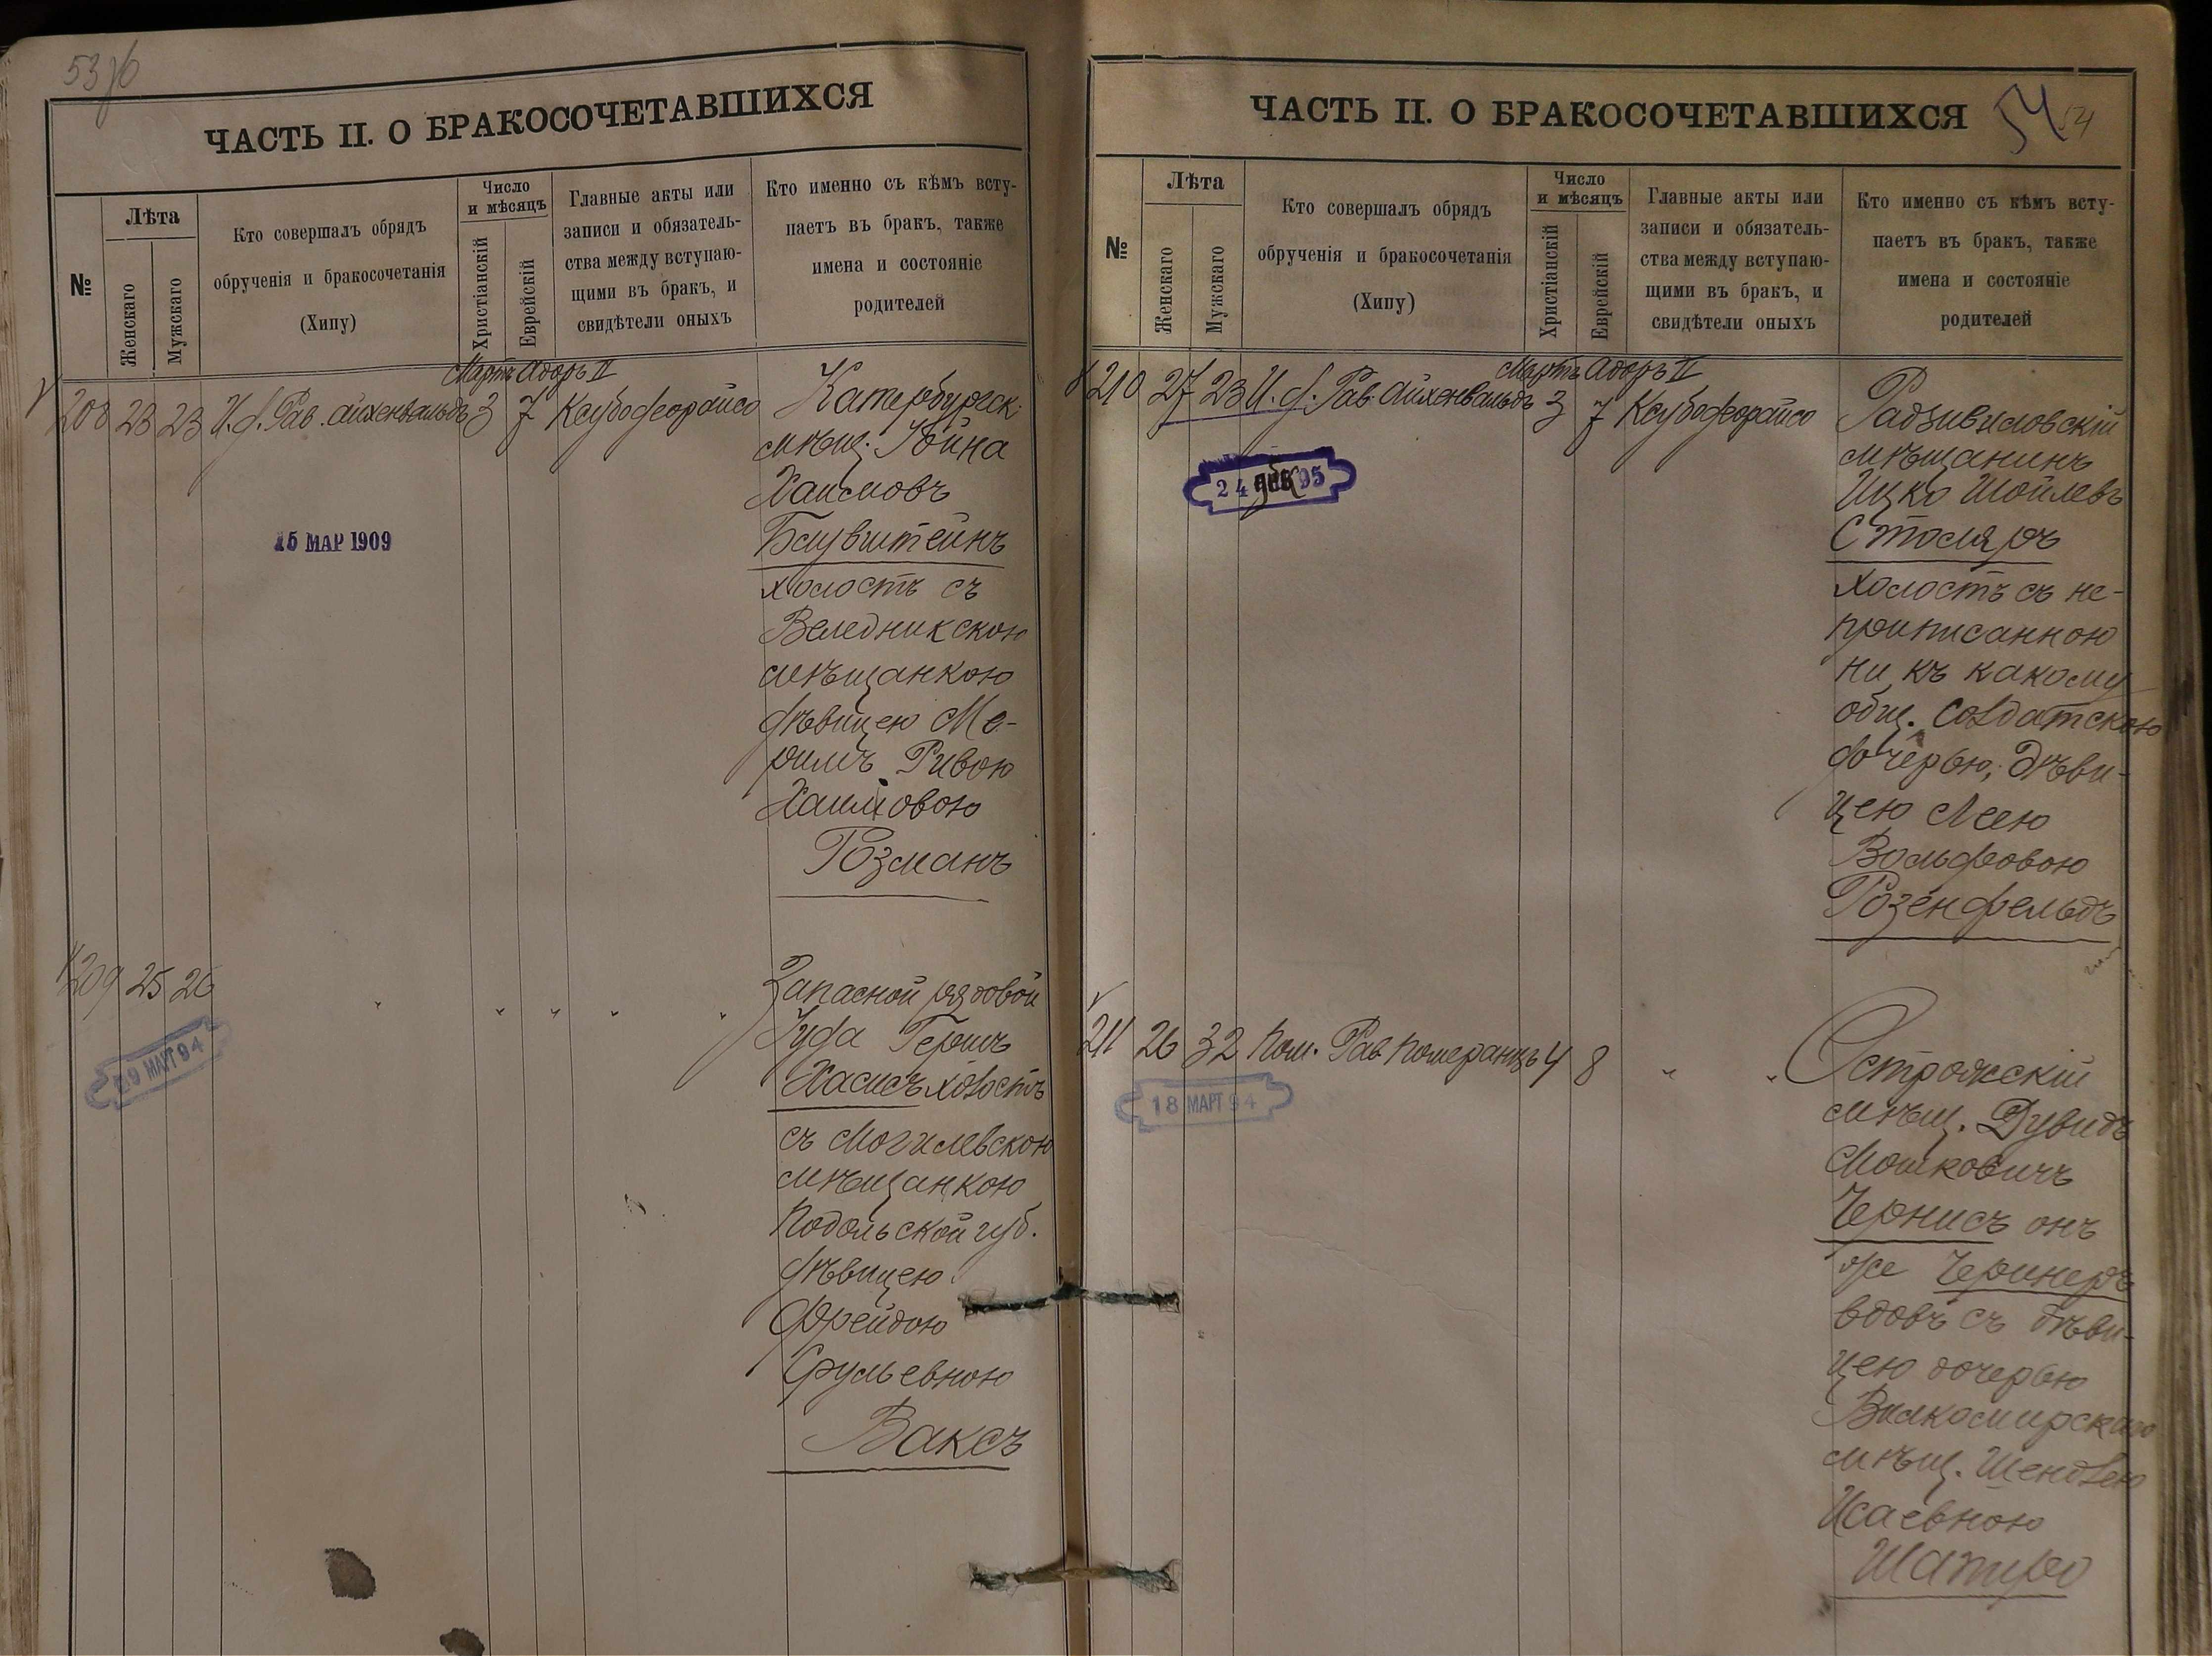 53 об
ЧАСТЬ II. О БРАКОСОЧЕТАВШИХСЯ
№
Лѣта
Женскаго
Мужскаго
Кто совершалъ обрядъ
обрученія и бракосочетанія
(Хипу)
Число
и мѣсяцъ
Христіанскій
Еврейскій
Главные акты или
записи и обязатель-
ства между вступаю-
щими въ бракъ, и
свидѣтели оныхъ
Кто именно съ кѣмъ всту-
паетъ въ бракъ, также
имена и состояніе
родителей
Мартъ Адоръ II
208 23 23 И. д. Рав. Айхенвальдъ 3 7 Ксубофорайсо
Катербургск.
мѣщ. Іойна
Хаимовъ
Блувштейнъ
холостъ съ
Веледникскою
мѣщанкою
дѣвицею Ме-
римъ Ривою
Хаимовою
Розманъ
15 МАР 1909
209 25 26 " " " " "
Запасной рядовой
Іуда Гершъ
Хасисъ холостъ
съ Могилевскою
мѣщанкою
Подольской губ.
дѣвицею
Фрейдою
Срульевною
Ваксъ
29 МАРТ 94
ЧАСТЬ II. О БРАКОСОЧЕТАВШИХСЯ
54 54
№
Лѣта
Женскаго
Мужскаго
Кто совершалъ обрядъ
обрученія и бракосочетанія
(Хипу)
Число
и мѣсяцъ
Христіанскій
Еврейскій
Главные акты или
записи и обязатель-
ства между вступаю-
щими въ бракъ, и
свидѣтели оныхъ
Кто именно съ кѣмъ всту-
паетъ въ бракъ, также
имена и состояніе
родителей
Мартъ Адоръ II
210 27 23 И. д. Рав. Айхенвальдъ 3 7 Ксубофорайсо
Радзивиловскій
мѣщанинъ
Ицко Шойлевъ
Столяръ
холостъ съ не-
приписанною
ни къ какому
общ. солдатскою
дочерью, дѣви-
цею Леею
Вольфовою
Розенфельдъ
24 95
211 26 32 Пом. Рав. Померанцъ 4 8 " "
Острожскій
мѣщ. Дувидъ
Мошковичъ
Чернисъ онъ
же Черинеръ
вдовъ съ дѣви-
цею дочерью
Вилкомирскаго
мѣщ. Шендлею
Исаевною
Шапиро
18 МАРТ 94